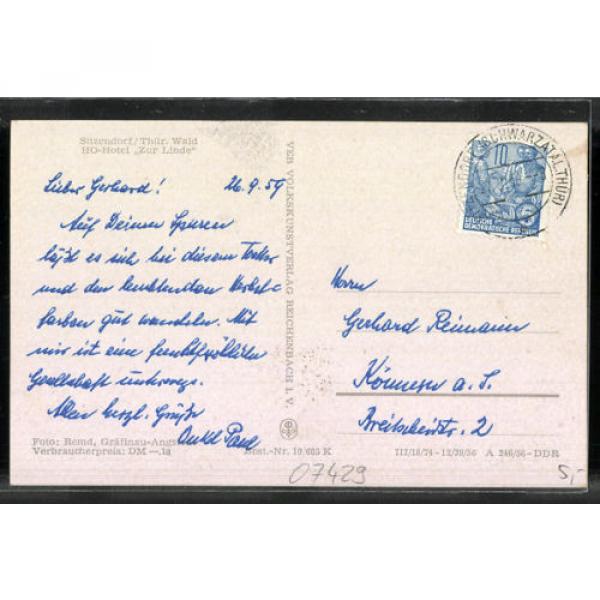 Sitzendorf/Thür. Wald
HO-Hotel „Zur Linde"
Lieber Gerhard! 26.9.59
Auf Deinen Spuren
läßt es sich bei diesem
und den leuchtenden Herbst-
farben gut wandeln. Mit
mir ist eine
Gesellschaft unterwegs.
Allen herzl. Grüße
Onkel Paul
Foto: Remd, Gräfinau-Angst
Verbraucherpreis: DM —.18
Best.-Nr. 10 603 K
VEB VOLKSKUNSTVERLAG REICHENBACH I. V.
SCHWARZATAL THÜR
10
DEUTSCHE
DEMOKRATISCHE REPUBLIK
Herrn
Gerhard Reimann
Könnern a. S.
Breitscheidstr. 2
III/18/74 A 246/56-DDR
07429
5,-